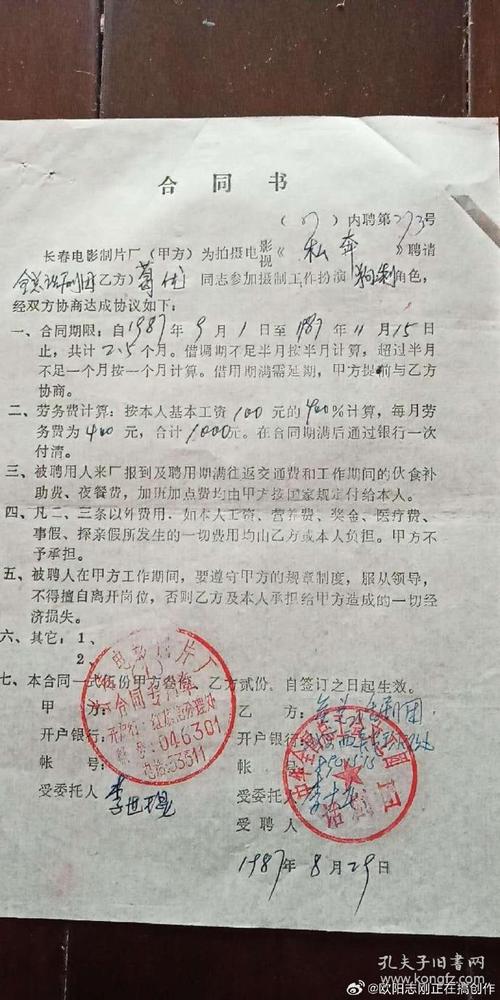 合同书
(87)内聘第273号
长春电影制片厂(甲方)为拍摄电影视《私奔》聘请
全总话剧团(乙方)葛优同志参加摄制工作扮演角色,
经双方协商达成协议如下:
一、合同期限:自1987年9月1日至1987年11月15日
止,共计2.5个月。借调期不足半月按半月计算,超过半月
不足一个月按一个月计算。借用期满需延期,甲方提前与乙方
协商。
二、劳务费计算:按本人基本工资100元的400%计算,每月劳
务费为400元,合计1000元。在合同期满后通过银行一次
付清。
三、被聘用人来厂报到及聘用期满往返交通费和工作期间的伙食补
助费、夜餐费,加班加点费均由甲方按国家规定付给本人。
四、凡二、三条以外费用,如本人工资、营养费、奖金、医疗费、
事假、探亲假所发生的一切费用均由乙方或本人负担。甲方不
予承担。
五、被聘人在甲方工作期间,要遵守甲方的规章制度,服从领导,
不得擅自离开岗位,否则乙方及本人承担给甲方造成的一切经
济损失。
六、其它:1、
2、
七、本合同一式伍份甲方叁份,乙方贰份。自签订之日起生效。
甲方:
开户银行:
帐号:
受委托人
电影制片厂
合同专用章
开户行:红旗街办理处
帐号:046301
电话:53311
乙方:全总话剧团
开户银行:
帐号:
受委托人
受聘人
话剧团
1987年8月29日
孔夫子旧书网
www.kongfz.com
@欧阳志刚正在搞创作